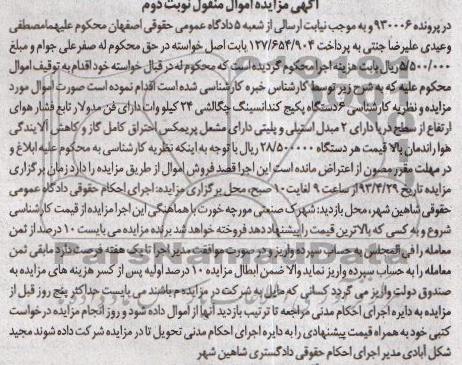 آگهی مزایده اموال منقول نوبت دوم
در پرونده ۹۳۰۰۰۶ و به موجب نیابت ارسالی از شعبه ۵ دادگاه عمومی حقوقی اصفهان محکوم علیهما مصطفی
وعیدی علیرضا جنتی به پرداخت ۱۲۷/۶۵۴/۹۰۴ بابت اصل خواسته در حق محکوم له صفر علی جوام و مبلغ
۵/۵۰۰/۰۰۰ ریال بابت هزینه اجرا محکوم گردیده است که محکوم له در قبال خواسته خود اقدام به توقیف اموال
محکوم علیه که به شرح زیر توسط کارشناس خبره کارشناسی شده است اقدام نموده است صورت اموال مورد
مزایده و نظریه کارشناسی ۶ دستگاه پکیج کندانسینگ چگالشی ۲۴ کیلو وات دارای فن مدولار تابع فشار هوای
ارتفاع از سطح دریا دارای ۲ مبدل استیلی و پلیتی دارای مشعل پریمکس احتراق کامل گاز و کاهش آلایندگی
هوا راندمان بالا قیمت هر دستگاه ۲۸/۵۰۰۰۰۰ ریال با توجه به اینکه نظریه کارشناسی به محکوم علیه ابلاغ و
در مهلت مقرر مصون از اعتراض مانده است این اجرا قصد فروش اموال از طریق مزایده را دارد زمان برگزاری
مزایده تاریخ ۹۳/۴/۲۹ از ساعت ۹ لغایت ۱۰ صبح، محل برگزاری مزایده: اجرای احکام حقوقی دادگاه عمومی
حقوقی شاهین شهر، محل بازدید: شهرک صنعتی مورچه خورت با هماهنگی این اجرا مزایده از قیمت کارشناسی
شروع و به کسی که بالاترین قیمت را پیشنهاد دهد فروخته خواهد شد برنده مزایده می بایست ۱۰ درصد از ثمن
معامله را فی المجلس به حساب سپرده واریز و در صورت موافقت مدیر اجرا تا یک هفته فرصت دارد مابقی ثمن
معامله را به حساب سپرده واریز نماید والا ضمن ابطال مزایده ۱۰ درصد اولیه پس از کسر هزینه های مزایده به
صندوق دولت واریز می گردد کسانی که مایل به شرکت در مزایده م باشند می بایست حداکثر پنج روز قبل از
مزایده به دایره اجرای احکام مدنی مراجعه تا ترتیب بازدید آنها از اموال داده شود و روز انجام مزایده درخواست
کتبی خود به همراه قیمت پیشنهادی را به دایره اجرای احکام مدنی تحویل تا در مزایده شرکت داده شوند مجید
شکل آبادی مدیر اجرای احکام حقوقی دادگستری شاهین شهر
ParsNamadData